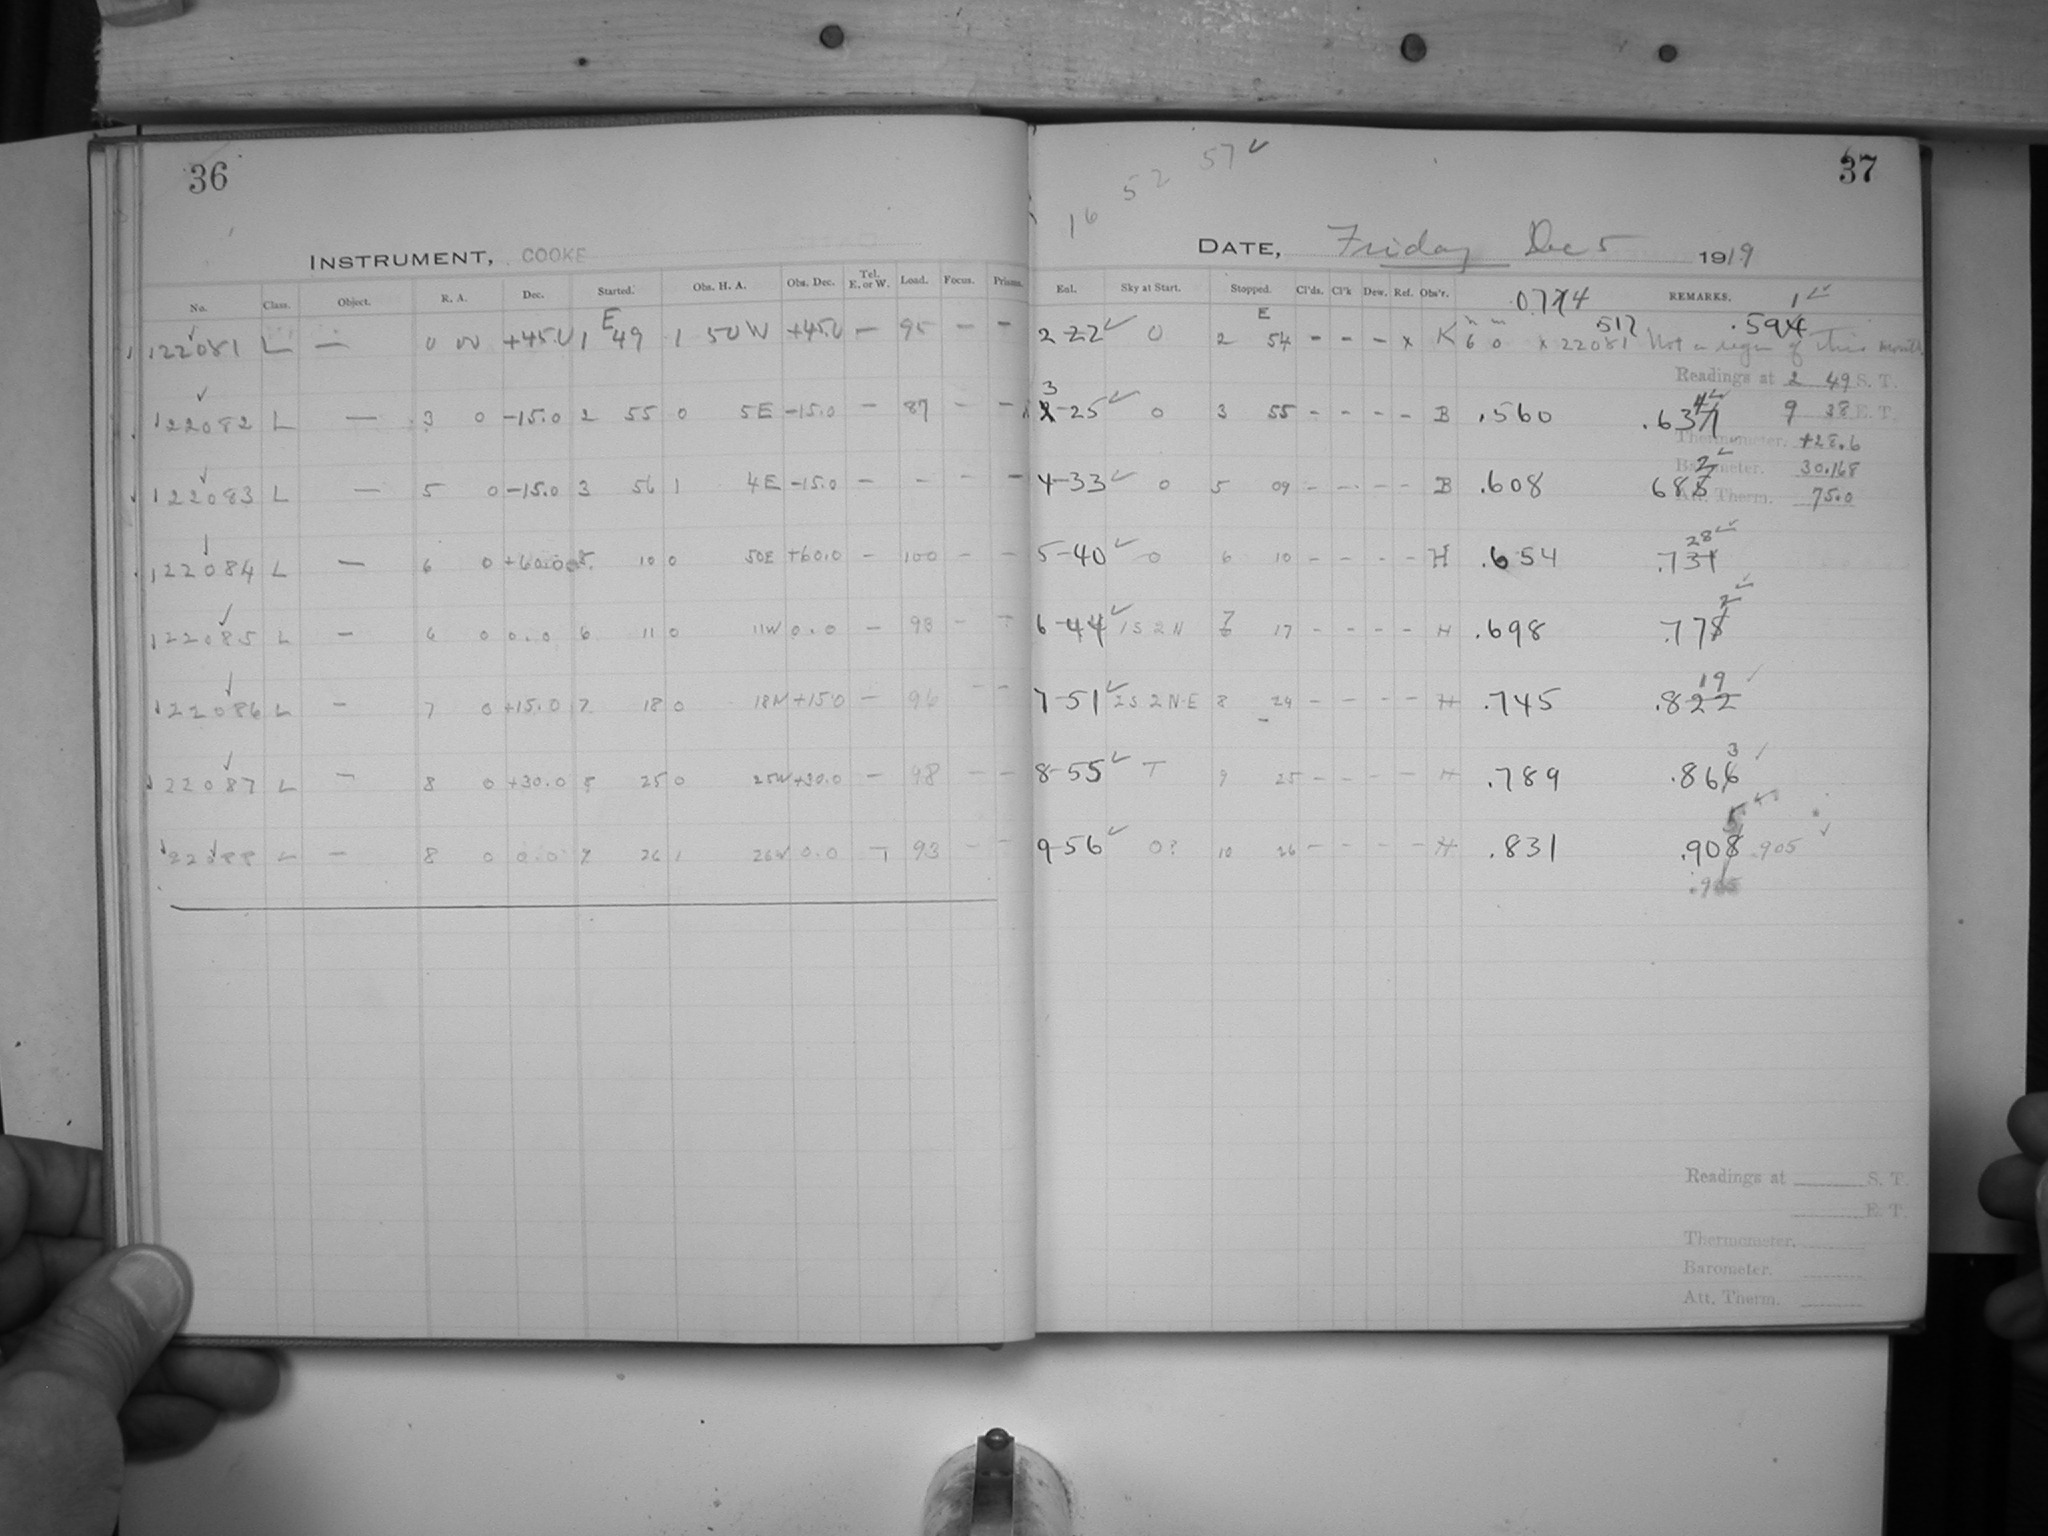 36
INSTRUMENT, COOKE
No. Class. Object. R. A. Dec. Started. Obs. H. A. Obs. Dec. Tel. E. or W. Load. Focus. Prisms.
22081 L — 0 00 +45.0 1 E 49 1 50 W +45.0 — 95 — —
22082 L — 3 0 -15.0 2 55 0 5E -15.0 — 87 — —
22083 L — 5 0 -15.0 3 56 1 4E -15.0 — - - —
22084 L — 6 0 +60.0 5 10 0 50E +60.0 — 100 — —
22085 L — 6 0 0.0 6 11 0 11W 0.0 — 98 - -
22086 L — 7 0 +15.0 7 18 0 18W +15.0 — 96 - -
22087 L — 8 0 +30.0 8 25 0 25W +30.0 — 98 — —
22088 L — 8 0 0.0 9 26 1 26W 0.0 93 - -
37
16 52 57 ✓
DATE, Friday Dec 5 1919
Eal. Sky at Start. Stopped. Cl'ds. Cl'k Dew. Ref. Obs'r. REMARKS.
2-22 ✓ 0 2 E 54 - - - x K 60 x 22081 517 .594 Not a region of this month
Readings at 2 49 S. T.
3-25 ✓ 0 3 55 - - - - B .560 .634 9 38 E. T.
Thermometer. +28.6
Barometer. 30.168
4-33 ✓ 0 5 09 - - - - B .608 682 Att. Therm. 75.0
5-40 ✓ 0 6 10 - - - - H .654 .731 28
6-44 ✓ 1S 2N 7 17 - - - - H .698 .775 2
7-51 ✓ 2S 2N-E 8 24 - - - - H .745 .822 19
8-55 ✓ T 9 25 - - - - H .789 .866 3
9-56 ✓ 0? 10 26 - - - - H .831 .908 5 .905
Readings at S. T.
E. T.
Thermometer.
Barometer.
Att. Therm.